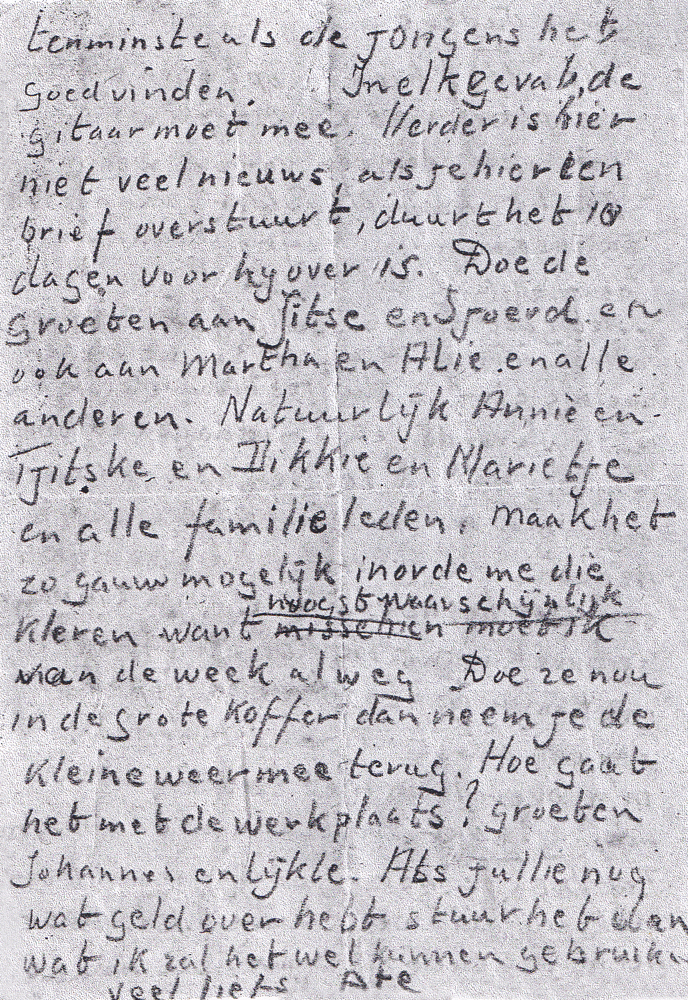 tenminste als de jongens het
goedvinden. In elk geval, de
gitaar moet mee. Verder is hier
niet veel nieuws, als je hier een
brief overstuurt, duurt het 10
dagen voor hy over is. Doe de
groeten aan Jitse en Sjoerd. en
ook aan Martha en Alie. en alle
anderen. Natuurlijk Annie en
Tjitske en Dikkie en Marietje
en alle familieleden. Maak het
zo gauw mogelijk inorde me die
hoogstwaarschijnlijk
kleren want misschien moet ik
van de week al weg Doe ze nou
in de grote koffer dan neem je de
kleine weer mee terug. Hoe gaat
het met de werkplaats? groeten
Johannes en lijkle. Als jullie nog
wat geld over hebt stuur het dan
wat ik zal het wel kunnen gebruiken
veel liefs Ate